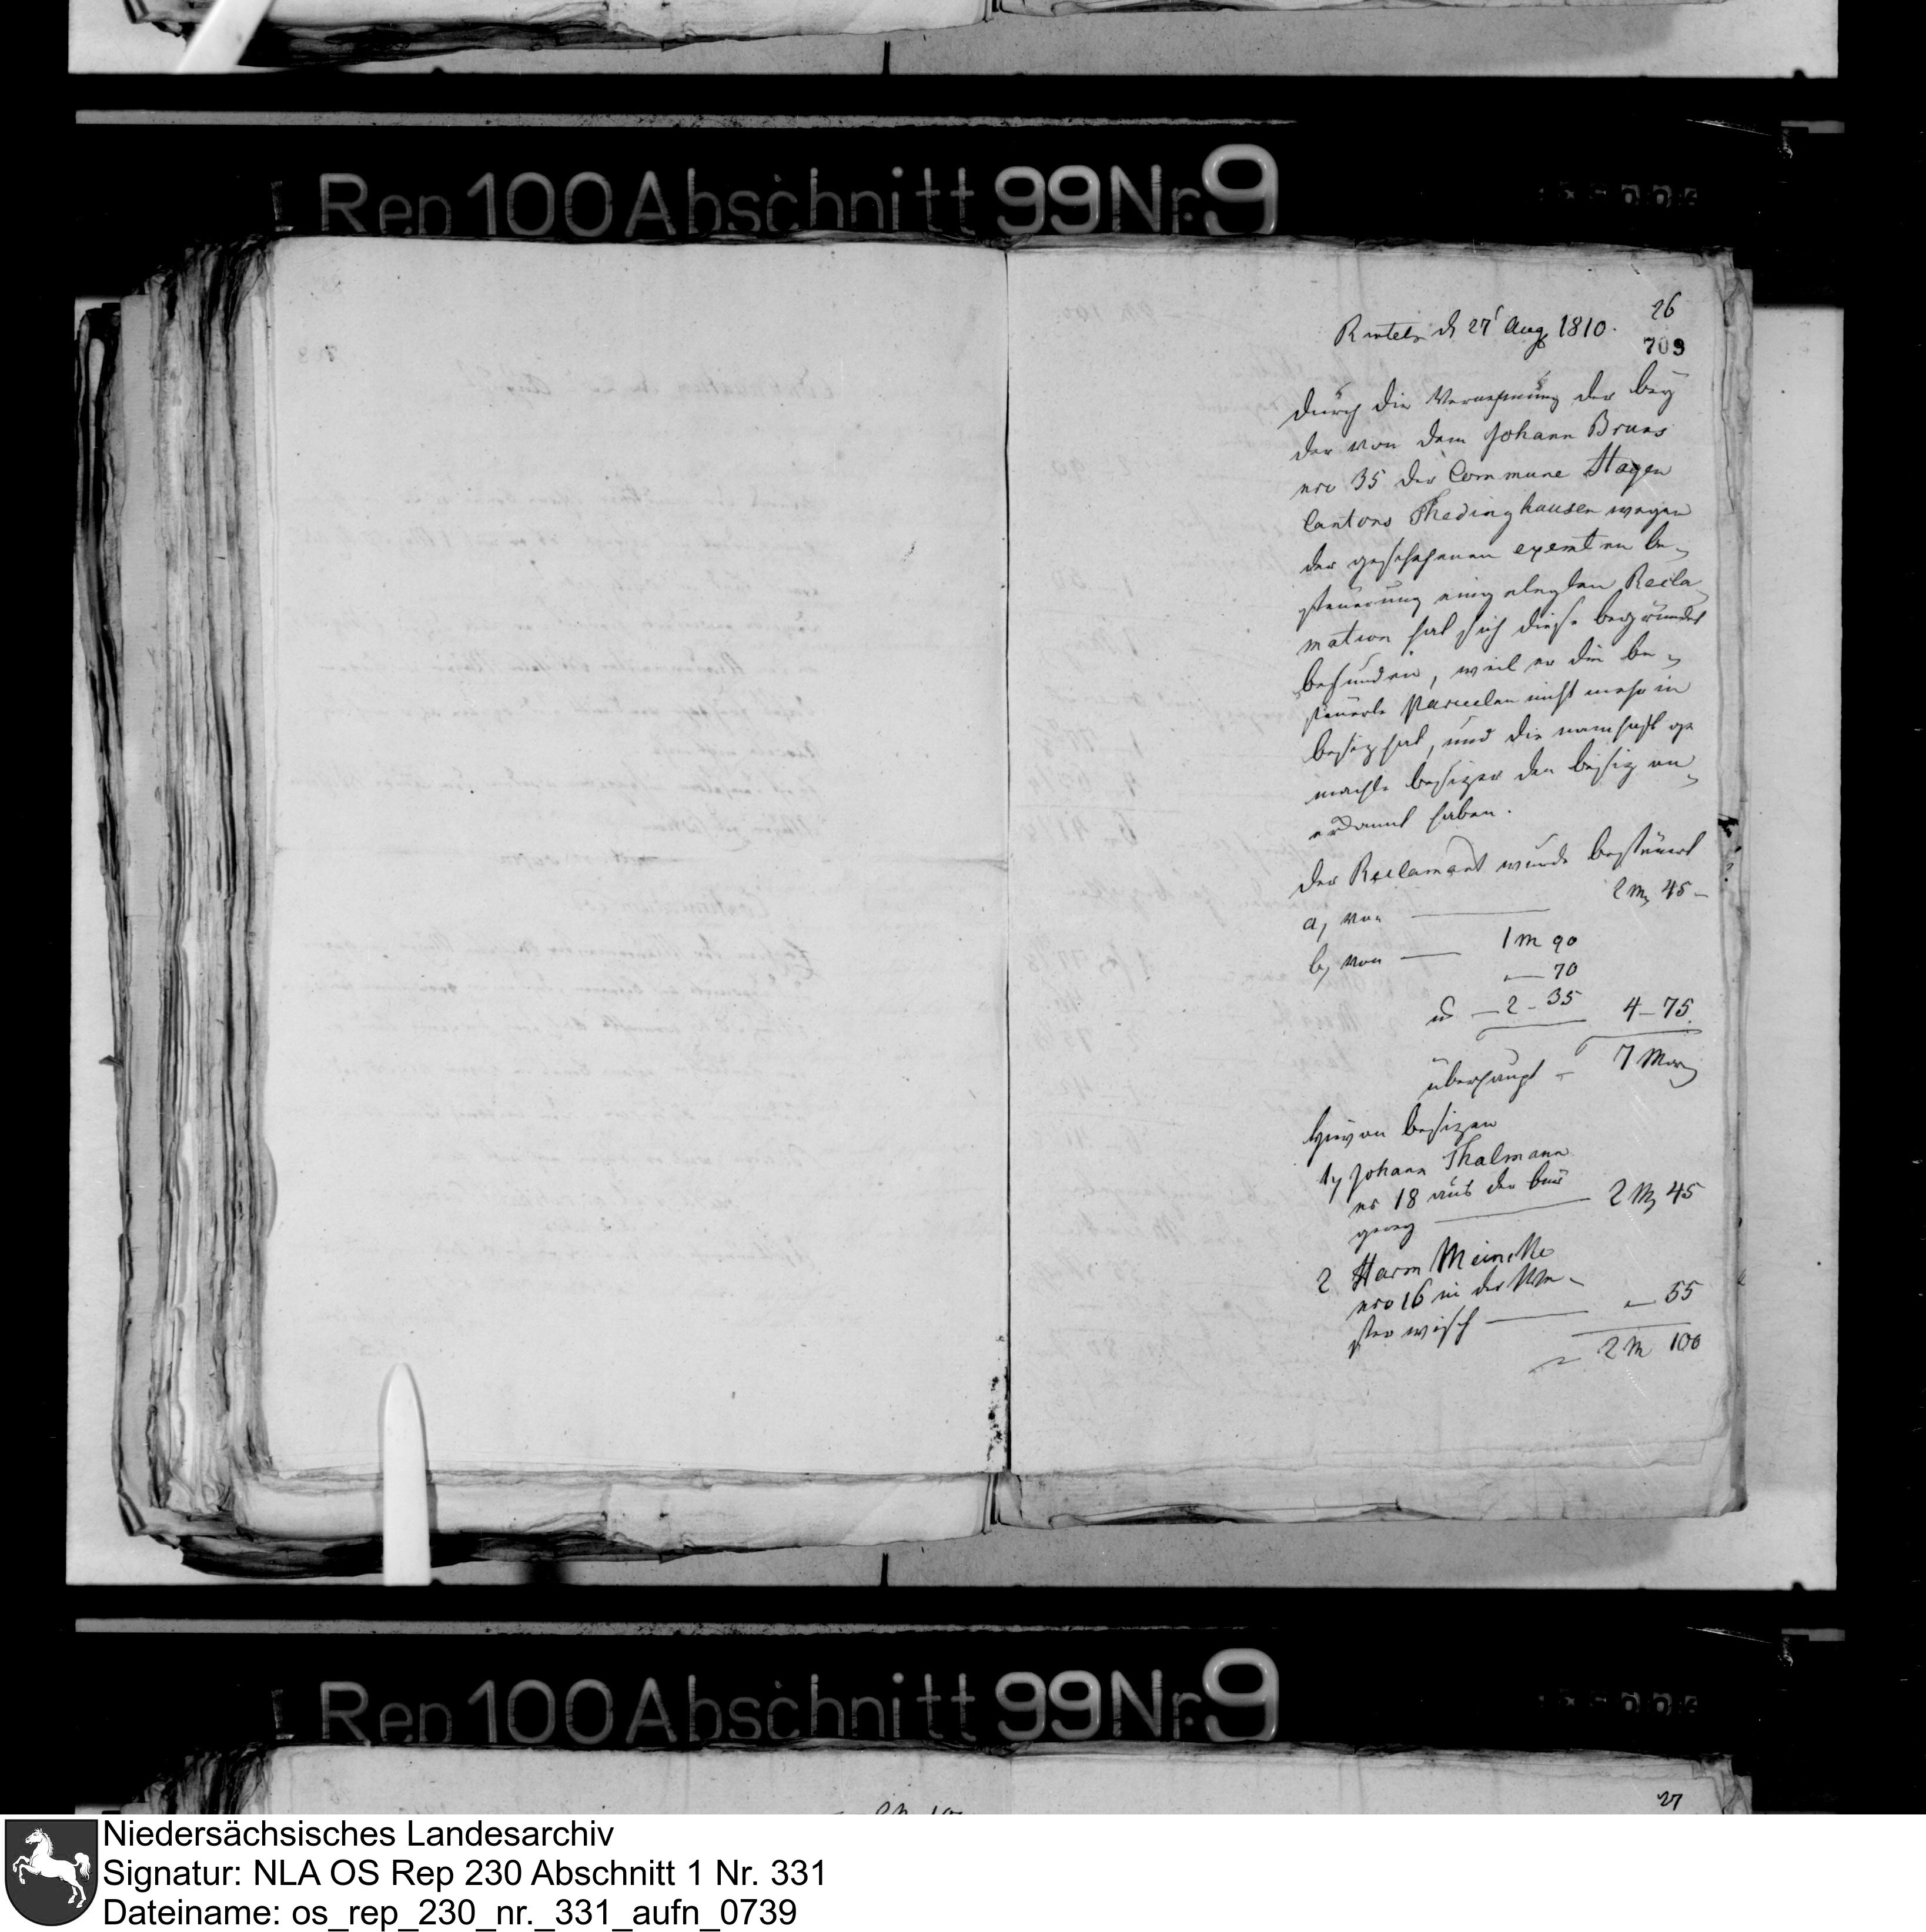 Rep 100 Abschnitt 99 Nr. 9
26
Rinteln d 27t Aug 1810.
709
durch die Vernehmung der bey
der von dem Johann Bruns
nro 35 der Commune Hagen
Cantons Thedinghausen wegen
der geschehenen exemten be-
steuerung eingelegten Recla
mation hat sich diese begründet
befunden, weil er die be-
steuerte Parcelen nicht mehr in
besiz hat, und die namhaft ge
machte besizer den besiz an
erkannt haben.
der Reclamant wurde besteuert
a, von 2 M 45 -
b, von 1 M 90
— 70
u — 2 - 35 4 - 75.
überhaupt — 7 Morg
hievon besizen
1, Johann Thalmann
no 18 aus der bür
gerey 2 M 45
2 Harm Meineke
nro 16 in der
ster wisch — 55
2 M 100
Rep 100 Abschnitt 99 Nr. 9
27
Niedersächsisches Landesarchiv
Signatur: NLA OS Rep 230 Abschnitt 1 Nr. 331
Dateiname: os_rep_230_nr._331_aufn_0739